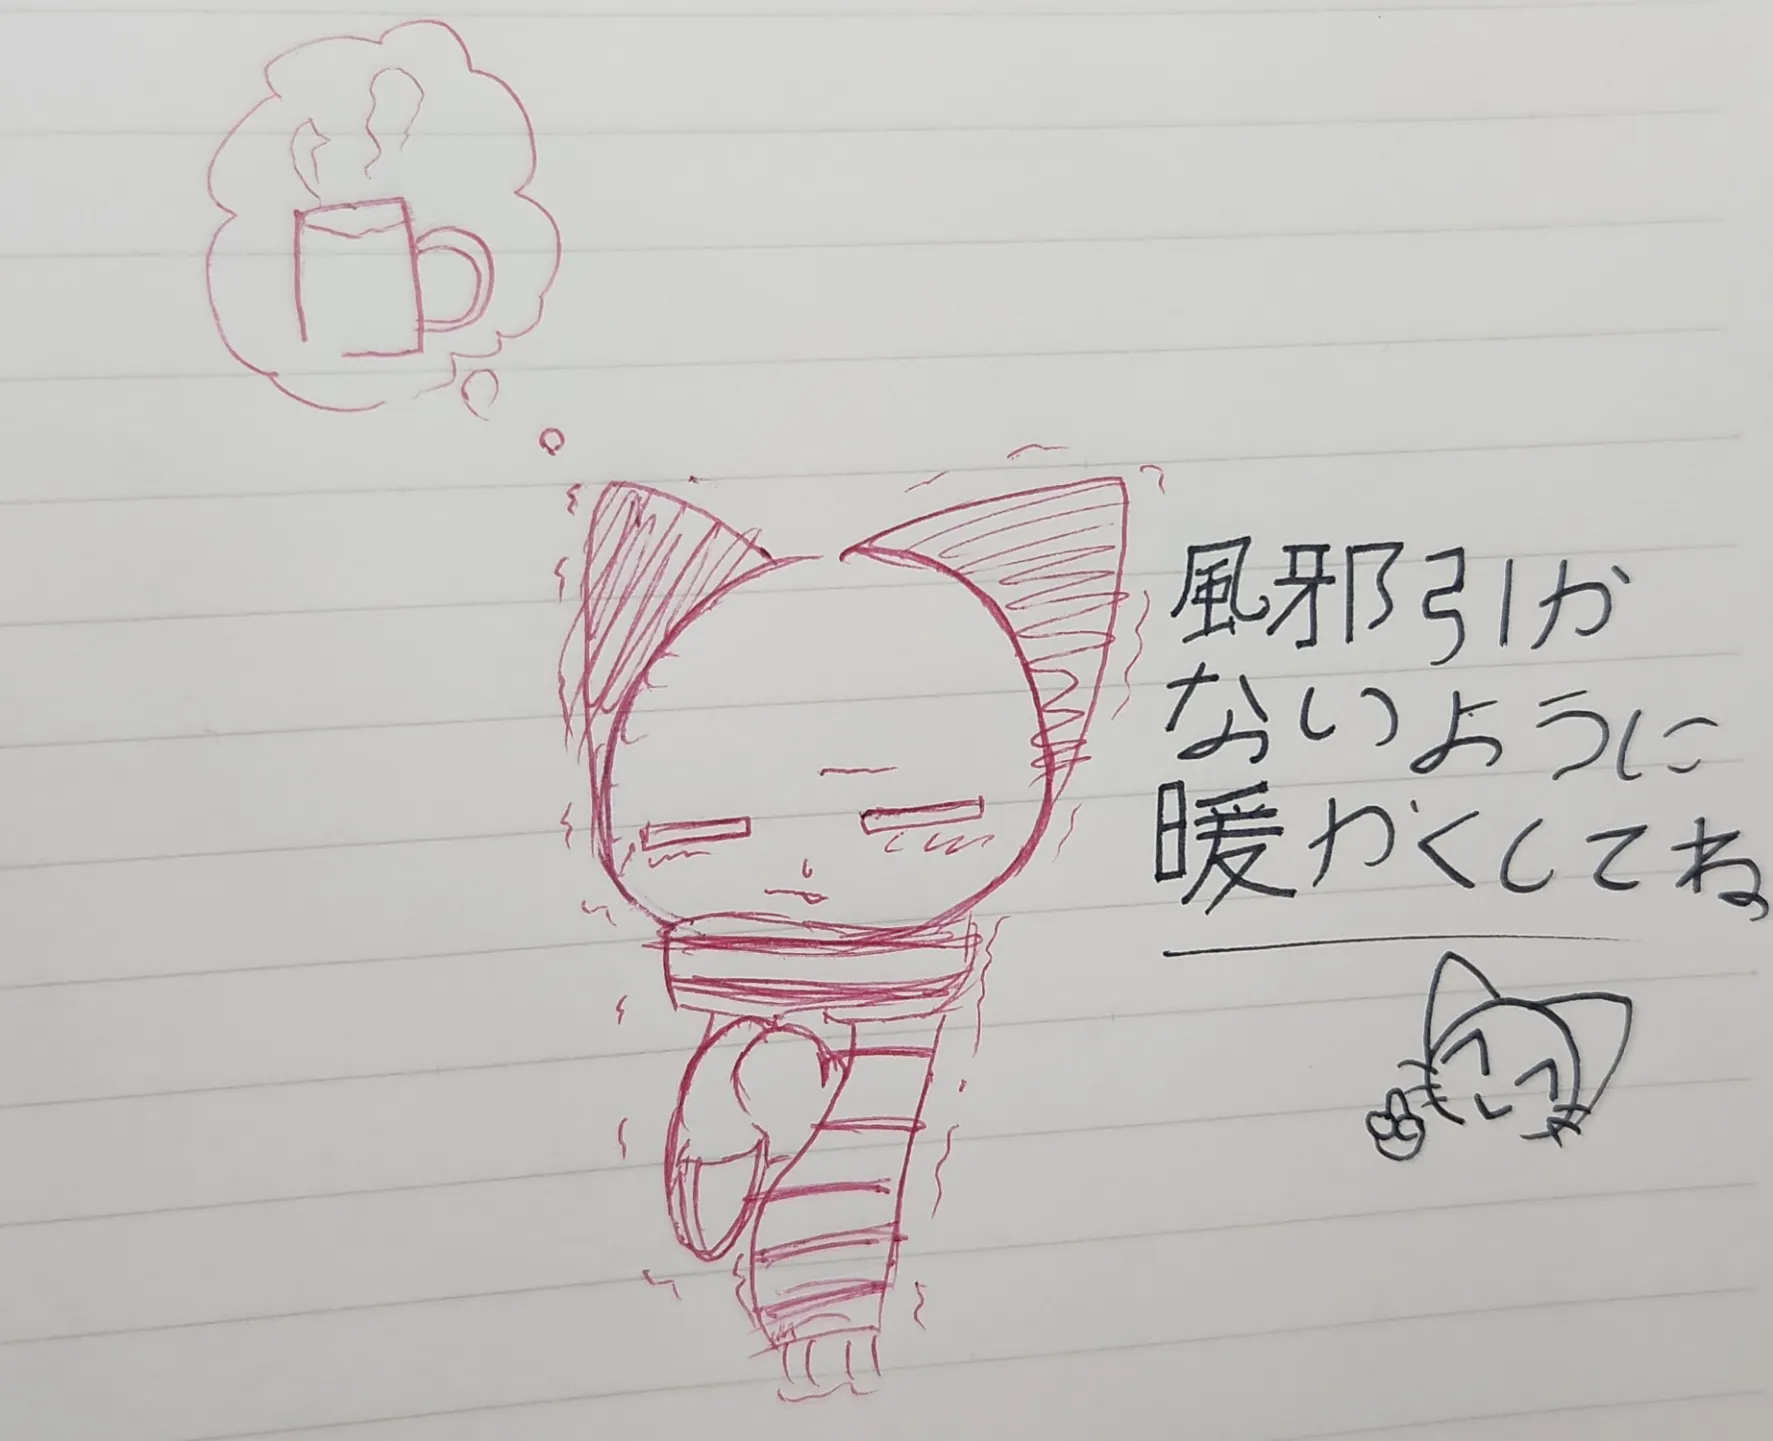 風邪引か
ないように
暖かくしてね